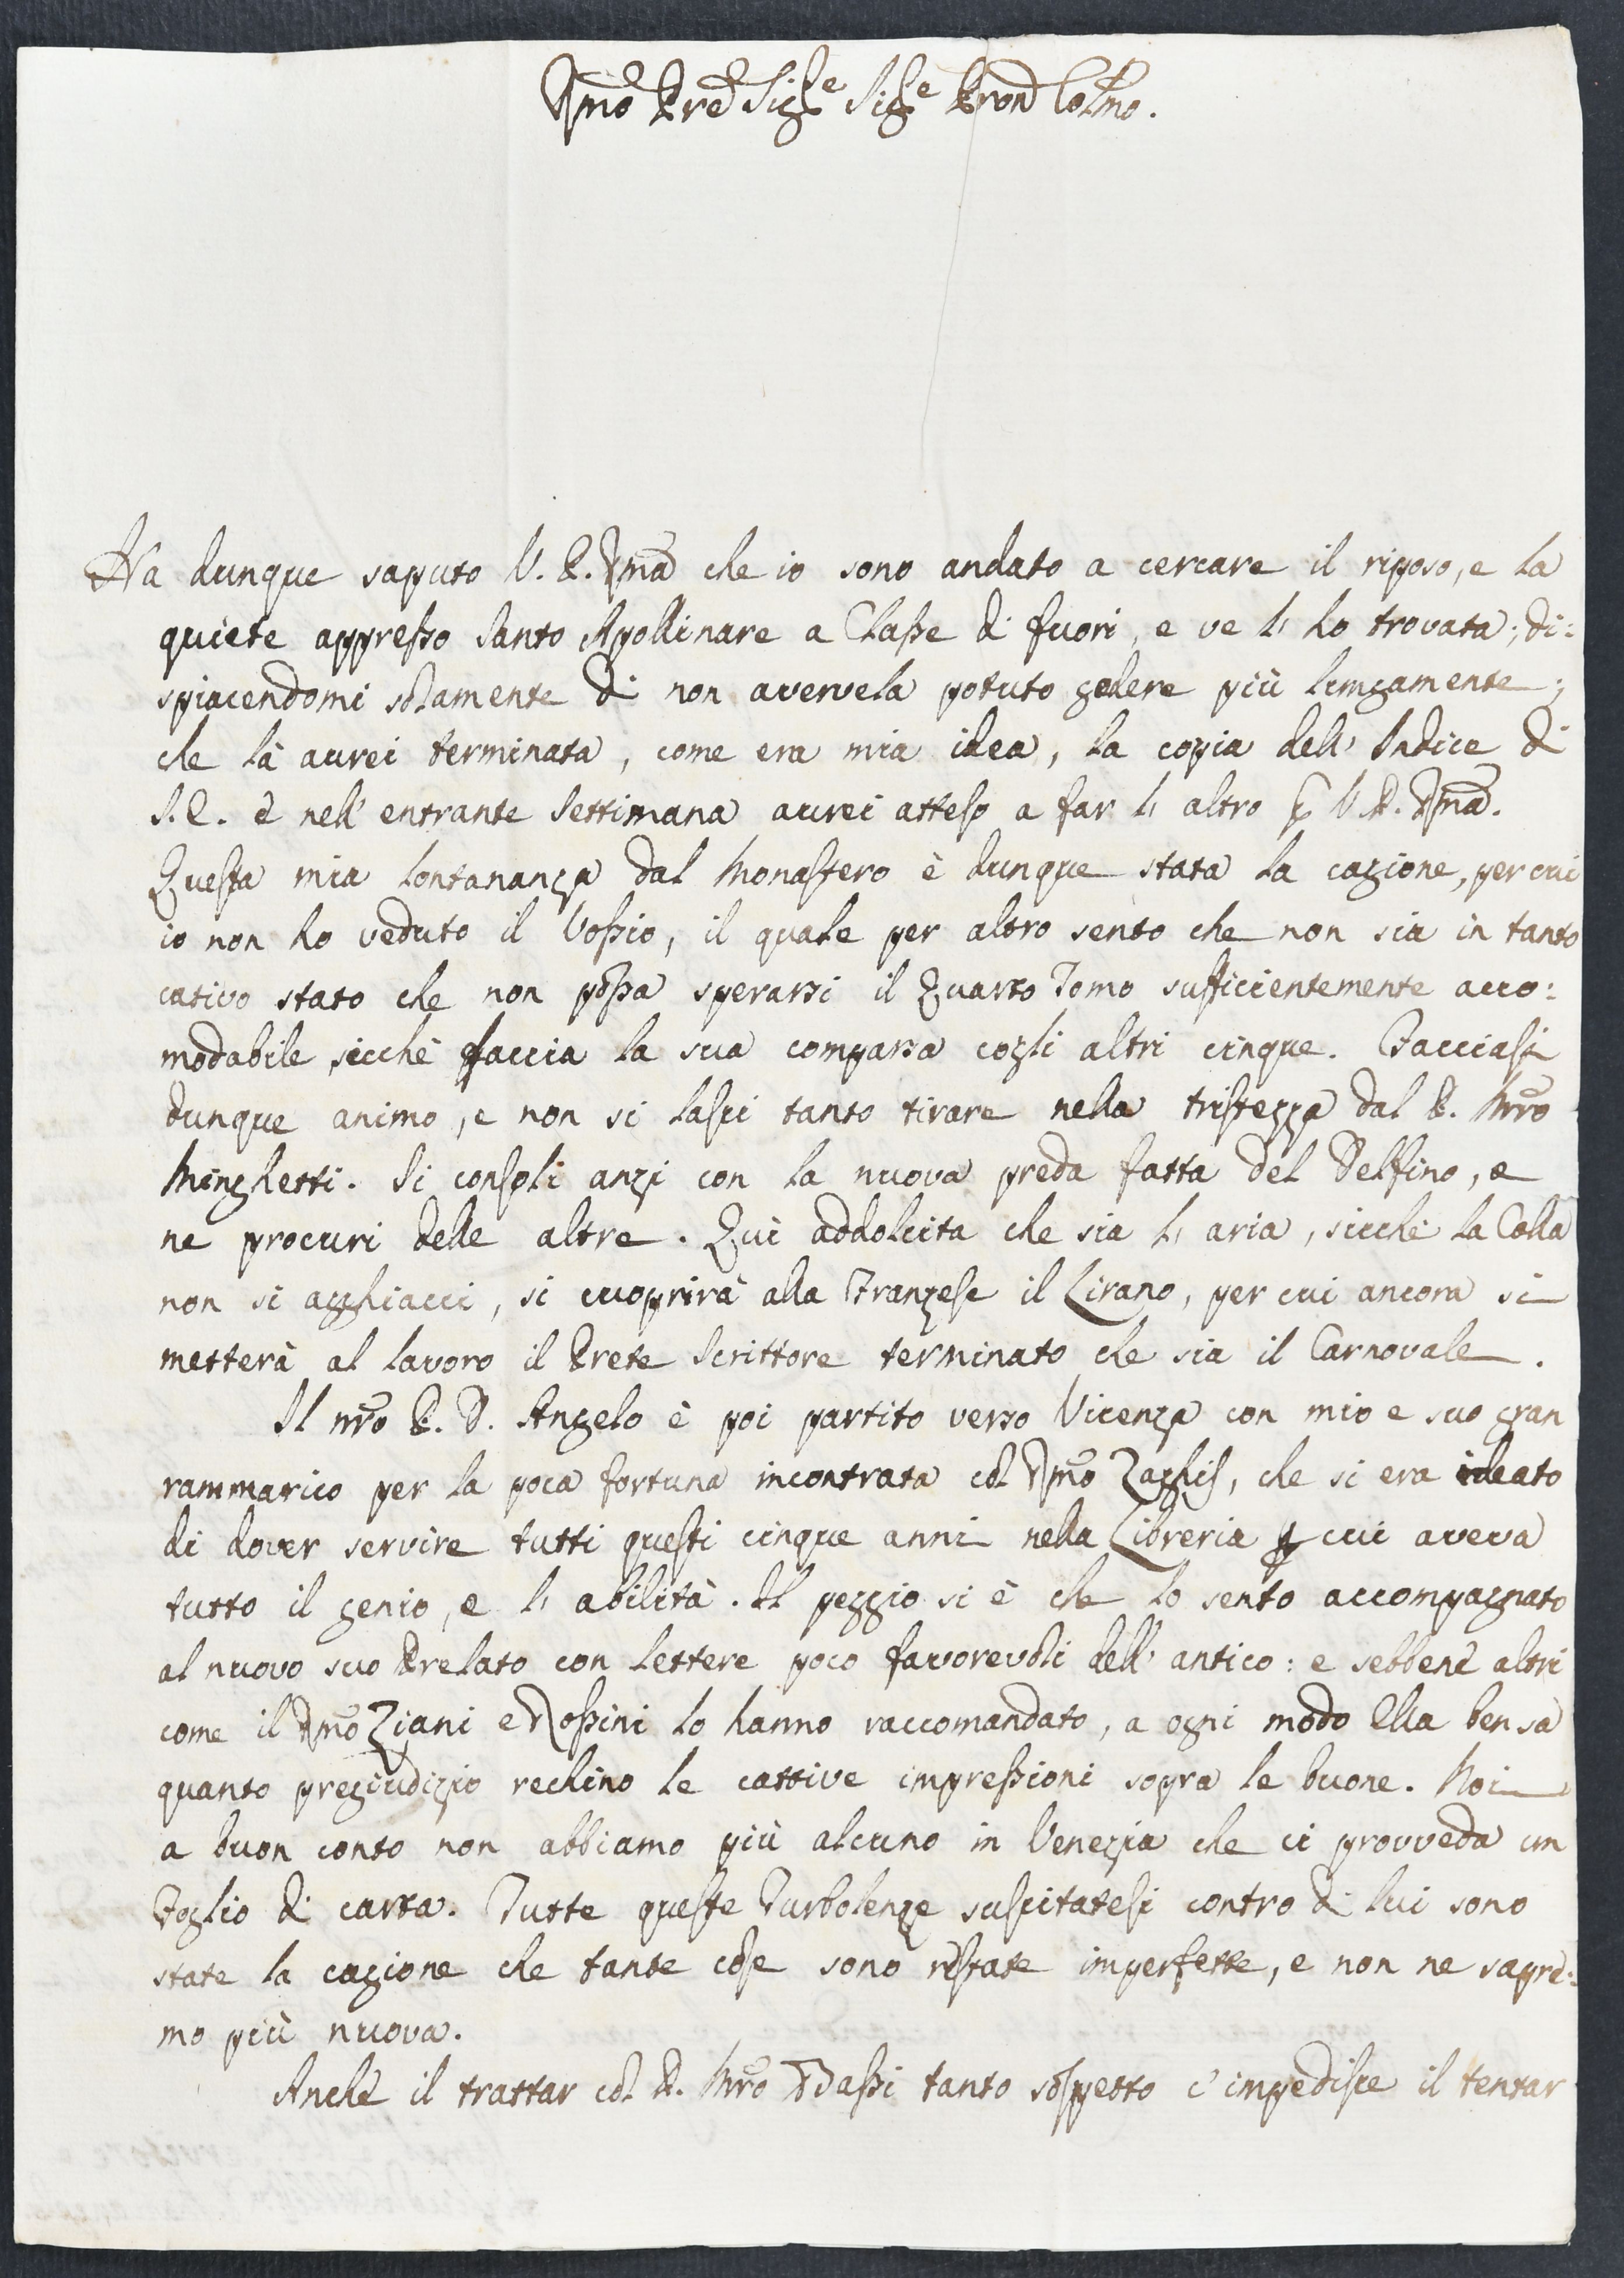 Rmo Pre Sige Sige Pron Colmo.
Ha dunque saputo V. P. Rma che io sono andato a cercare il riposo, e la
quiete appresso Santo Apollinare a Classe di fuori, e ve l' ho trovata; di:
spiacendomi solamente di non avervela potuto godere più lungamente;
che là avrei terminata, come era mia idea, la copia dell' Indice di
S.E. e nell' entrante Settimana avrei atteso a far l' altro per V. P. Rma.
Questa mia lontananza dal Monastero è dunque stata la cagione, per cui
io non ho veduto il Vossio, il quale per altro sento che non sia in tanto
cativo stato che non possa sperarsi il Quarto Tomo sufficientemente acco:
modabile, sicchè faccia la sua comparsa cogli altri cinque. Facciasi
dunque animo, e non si lasci tanto tirare nella tristezza dal P. Mro
Minghetti. Si consoli anzi con la nuova preda fatta del Delfino, e
ne procuri delle altre. Quì addolcita che sia l' aria, sicchè la Colla
non si agghiacci, si cuoprirà alla Franzese il Lirano, per cui ancora si
metterà al lavoro il Prete Scrittore terminato che sia il Carnovale.
Il nro P. D. Angelo è poi partito verso Vicenza con mio e suo gran
rammarico per la poca fortuna incontrata col Rmo Zaghis, che si era ideato
di dover servire tutti questi cinque anni nella Libreria per cui aveva
tutto il genio, e l' abilità. Il peggio si è che lo sento accompagnato
al nuovo suo Prelato con lettere poco favorevoli dell' antico: e sebbene altri
come il Rmo Ziani e Rossini lo hanno raccomandato, a ogni modo Ella ben sa
quanto pregiudizio rechino le cattive impressioni sopra le buone. Noi
a buon conto non abbiamo più alcuno in Venezia che ci provveda un
Foglio di carta. Tutte queste Turbolenze suscitatesi contro di lui sono
state la cagione che tante cose sono restate imperfette, e non ne sapre:
mo più nuova.
Anche il trattar col P. Mro tanto sospetto c' impedisce il tentar